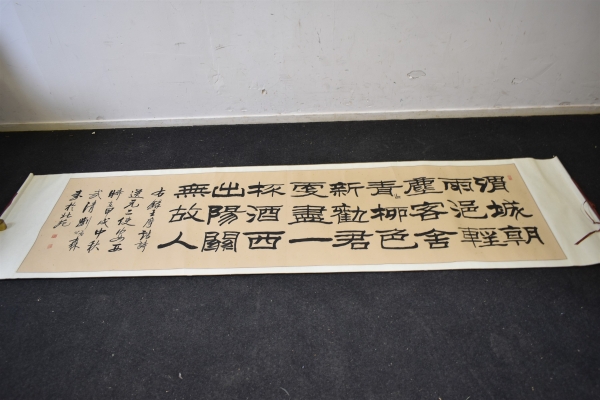 渭城朝
雨浥輕
塵客舍
青々柳色
新勸君
更盡一
杯酒西
出陽關
無故人
右錄王摩詰詩
送元二使安西
時在甲戌中秋
武清劉炳森